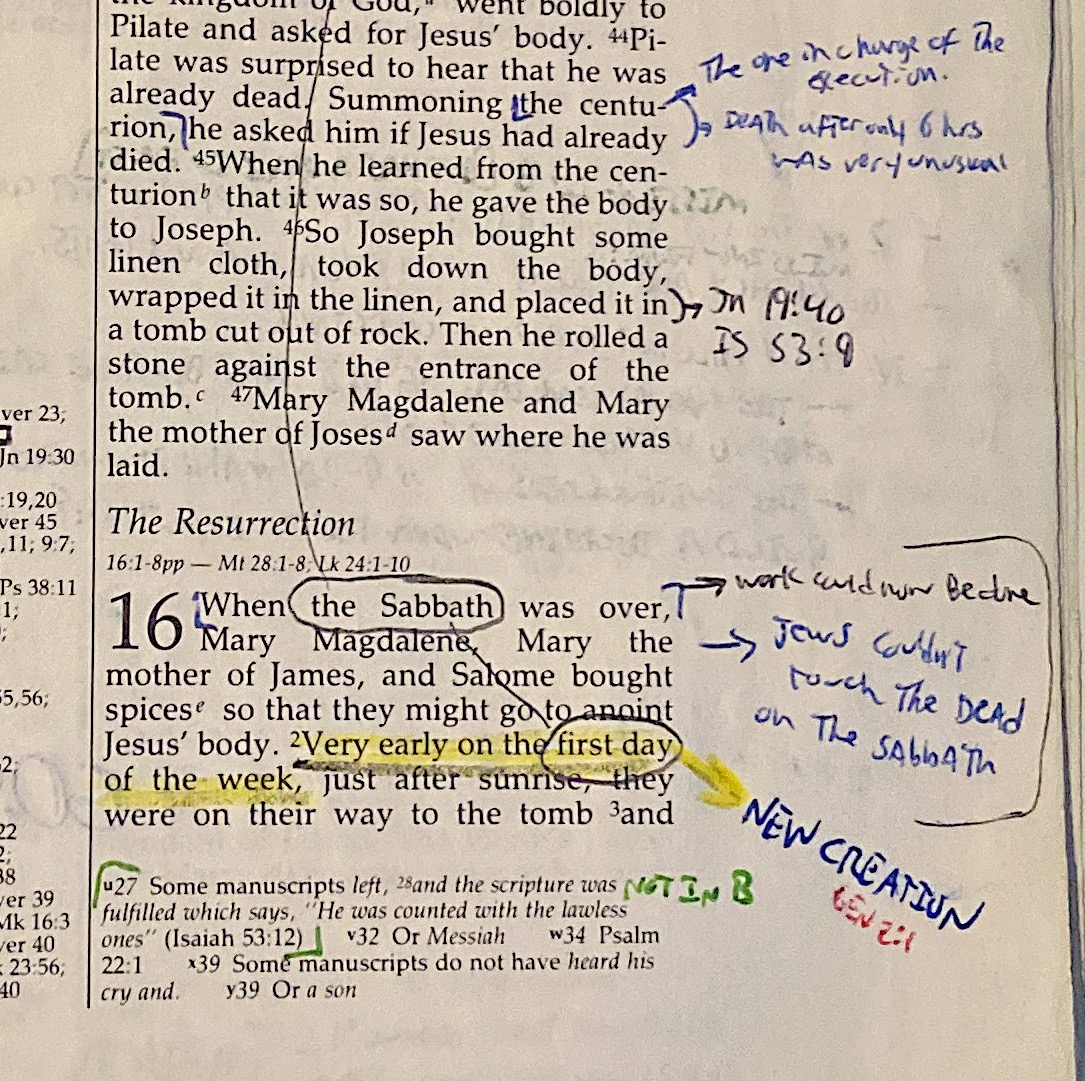 the kingdom of God," went boldly to
Pilate and asked for Jesus' body. 44Pi-
late was surprised to hear that he was
already dead. Summoning the centu-
rion, he asked him if Jesus had already
died. 45When he learned from the cen-
turion b that it was so, he gave the body
to Joseph. 46So Joseph bought some
linen cloth, took down the body,
wrapped it in the linen, and placed it in
a tomb cut out of rock. Then he rolled a
stone against the entrance of the
tomb. c 47Mary Magdalene and Mary
the mother of Joses d saw where he was
laid.
The Resurrection
16:1-8pp — Mt 28:1-8; Lk 24:1-10
16 When the Sabbath was over,
Mary Magdalene, Mary the
mother of James, and Salome bought
spices e so that they might go to anoint
Jesus' body. 2Very early on the first day
of the week, just after sunrise, they
were on their way to the tomb 3and
u27 Some manuscripts left, 28and the scripture was
fulfilled which says, "He was counted with the lawless
ones" (Isaiah 53:12) v32 Or Messiah w34 Psalm
22:1 x39 Some manuscripts do not have heard his
cry and. y39 Or a son
NOT IN B
The one in charge of The
execution.
DEATH after only 6 hrs
WAS very unusual
Jn 19:40
IS 53:9
work could now Be done
Jews Couldn't
Touch The DEAD
on The SAbbATh
NEW CREATION
GEN 2:1
ver 23;
Jn 19:30
:19,20
ver 45
,11; 9:7;
Ps 38:11
1;
;
55,56;
2;
22
2;
38
ver 39
Mk 16:3
ver 40
23:56;
40